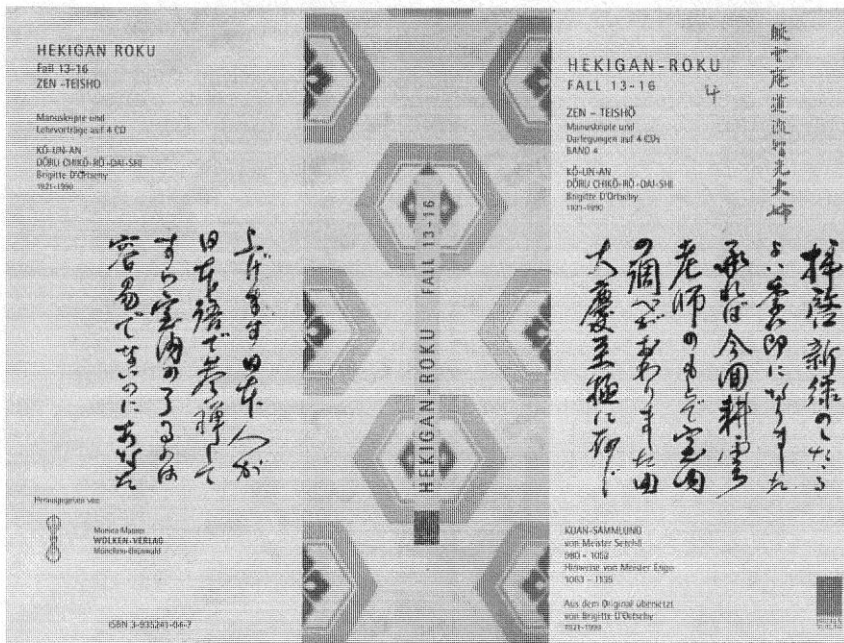 HEKIGAN ROKU
Fall 13-16
ZEN -TEISHO
Manuskripte und
Lehrvorträge auf 4 CD
KÔ-UN-AN
DÔRU CHIKÔ-RÔ-DAI-SHI
Brigitte D'Ortschy
1921-1990
上げます 日本人が
日本語で参禅して
すら室内の了るのは
容易でないのにあなた
Herausgegeben von:
Monica Maurer
WOLKEN-VERLAG
München-Grünwald
ISBN 3-935241-04-7
HEKIGAN-ROKU FALL 13-16
HEKIGAN-ROKU
FALL 13-16
4
ZEN - TEISHÔ
Manuskripte und
Darlegungen auf 4 CDs
BAND 4
KÔ-UN-AN
DÔRU CHIKÔ-RÔ-DAI-SHI
Brigitte D'Ortschy
1921-1990
雲庵道流智光大姉
拝啓 新緑のしたゝる
よい季節になりました
承れば今回耕雲
老師のもとで室内
の調べがおわりました由
大慶至極に存じ
KOAN-SAMMLUNG
von Meister Setchô
980 - 1052
Hinweise von Meister Engo
1063 - 1135
Aus dem Original übersetzt
von Brigitte D'Ortschy
1921-1990